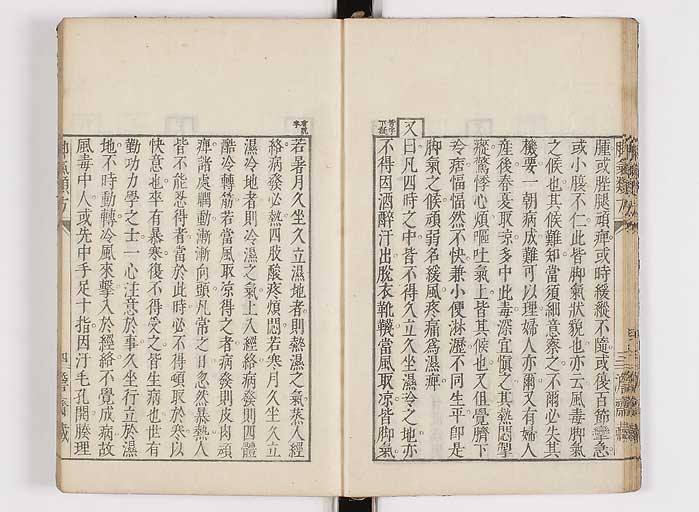 腫或䏶腿頑痺或時緩縱不隨或復百節攣急
或小腹不仁此皆脚氣狀貌也亦云風毒脚氣
之候也其候難知當須細意察之不爾必失其
機要一朝病成難可以理婦人亦爾又有婦人
產後春夏取涼多中此毒深宜愼之其熱悶掣
瘲驚悸心煩嘔吐氣上皆其候也又但覺臍下
冷痞愊愊然不快兼小便淋瀝不同生平即是
脚氣之候頑弱名緩風疼痛爲濕痺
又曰凡四時之中皆不得久立久坐濕冷之地亦
不得因酒醉汗出脫衣靴韈當風取涼皆脚氣
若暑月久坐久立濕地者則熱濕之氣蒸人經
絡病發必熱四肢酸疼煩悶若寒月久坐久立
濕冷地者則冷濕之氣上入經絡病發則四體
酷冷轉筋若當風取涼得之者病發則皮肉頑
痺諸處瞤動漸漸向頭凡常之日忽然暴熱人
皆不能忍得者當於此時必不得頓取於寒以
快意也卒有暴寒復不得受之皆生病也世有
勤功力學之士一心注意於事久坐行立於濕
地不時動轉冷風來擊入於經絡不覺成病故
風毒中人或先中手足十指因汗毛孔開腠理
脚氣類方
四